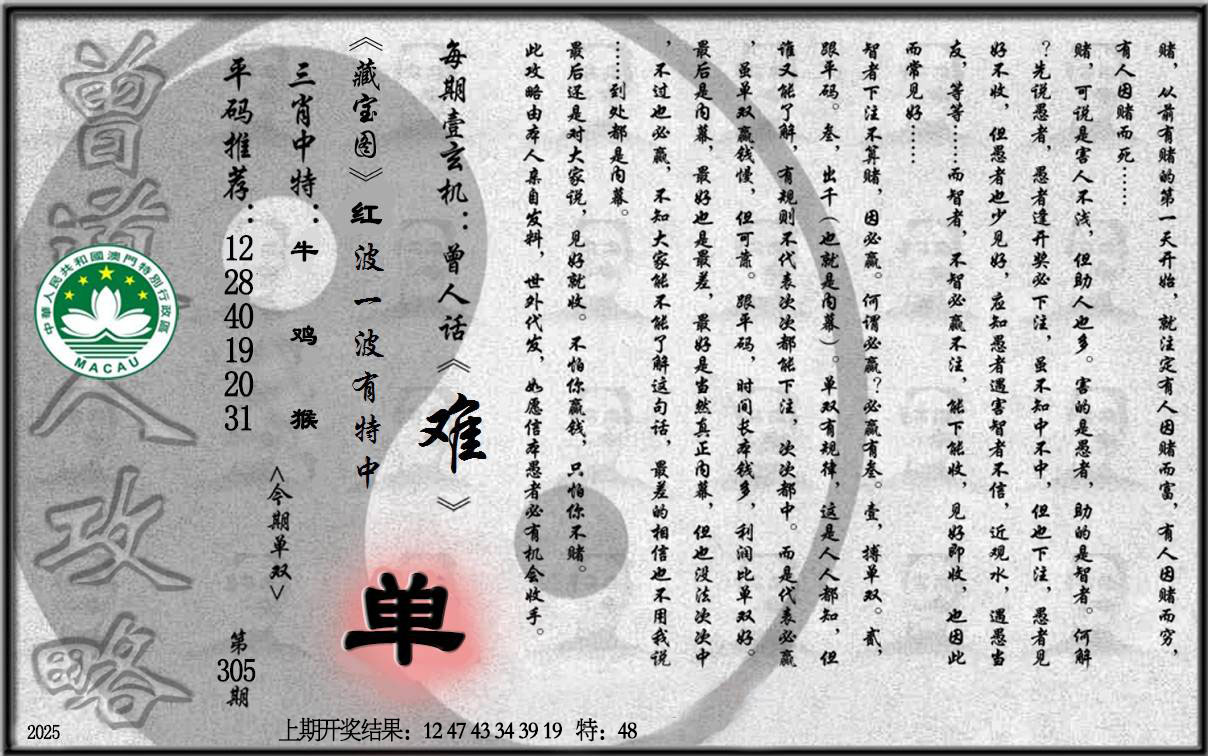 赌，从前有赌的第一天开始，就注定有人因赌而富，有人因赌而穷，
有人因赌而死……
赌，可说是害人不浅，但助人也多。害的是愚者，助的是智者。何解
？先说愚者，愚者逢开奖必下注，虽不知中不中，但也下注，愚者见
好不收，但愚者也少见好，应知愚者遇害智者不信，近观水，遇愚当
友，等等……而智者，不智必赢不注，能下能收，见好即收，也因此
而常见好……
智者下注不算赌，因必赢。何谓必赢？必赢有叁。壹，搏单双。贰，
跟平码。叁，出千（也就是内幕）。单双有规律，这是人人都知，但
谁又能了解，有规则不代表次次都能下注，次次都中。而是代表必赢
，虽单双赢钱慢，但可靠。跟平码，时间长本钱多，利润比单双好。
最后是内幕，最好也是最差，最好是当然真正内幕，但也没法次次中
，不过也必赢，不知大家能不能了解这句话，最差的相信也不用我说
……到处都是内幕。
最后还是对大家说，见好就收。不怕你赢钱，只怕你不赌。
此攻略由本人亲自发料，世外代发，如愿信本愚者必有机会收手。
每期壹玄机：曾人话《难》
《藏宝图》红波一波有特中
单
三肖中特：牛 鸡 猴
<今期单双>
平码推荐：12 28 40 19 20 31
第305期
曾道人攻略
中華人民共和國澳門特別行政區
MACAU
2025
上期开奖结果：12 47 43 34 39 19 特：48